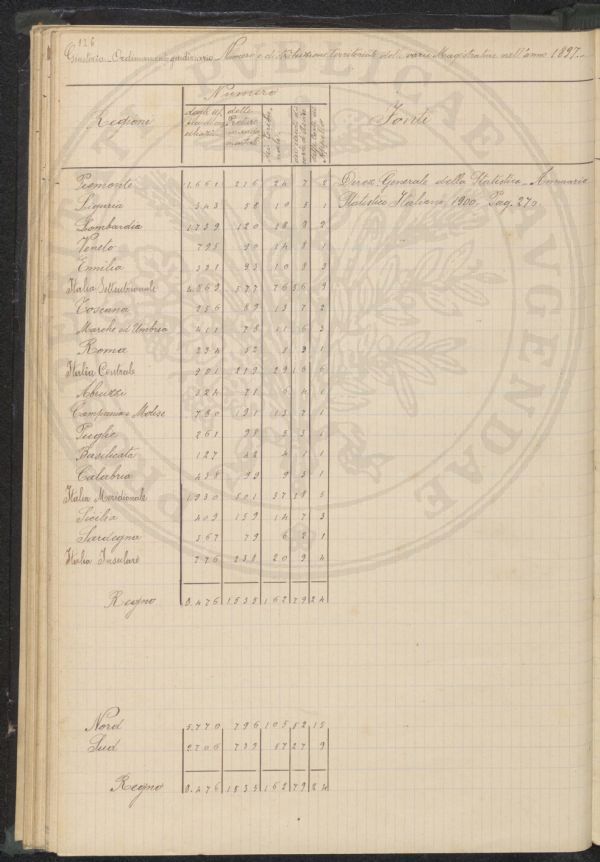 126
Giustizia. Ordinamento giudiziario. Numero e distribuzione territoriale delle varie Magistrature nell'anno 1897.
Regioni Numero Fonti
degli uffici di conciliazione delle Preture mandamentali
Piemonte 1.661 216 24 7 Direz. Generale della Statistica - Annuario
Liguria 343 58 10 5 1 Statistico Italiano, 1900, Pag. 270
Lombardia 120 18 9
Veneto 795 90 14 8 1
Emilia 93 10 9 3
Italia Settentrionale 577 76 36 9
Toscana 256 89 13 7 2
Marche ed Umbria 411 78 11 6 3
Roma 234 52 5 1
Italia Centrale 901 219 29 16 6
Abruzzi 324 71 6 4 1
Campania e Molise 191 13 7 1
Puglie 261 98 1
Basilicata 127 42 4 1 1
Calabria 99 9 1
Italia Meridionale 1.930 501 37 18 5
Sicilia 409 159 14 7 3
Sardegna 367 79 6 2 1
Italia Insulare 776 238 20 9 4
Regno 8.476 1535 162 79 24
Nord 5.770 796 105 52 15
Sud 2706 739 57 27 9
Regno 8.476 1535 162 79 24